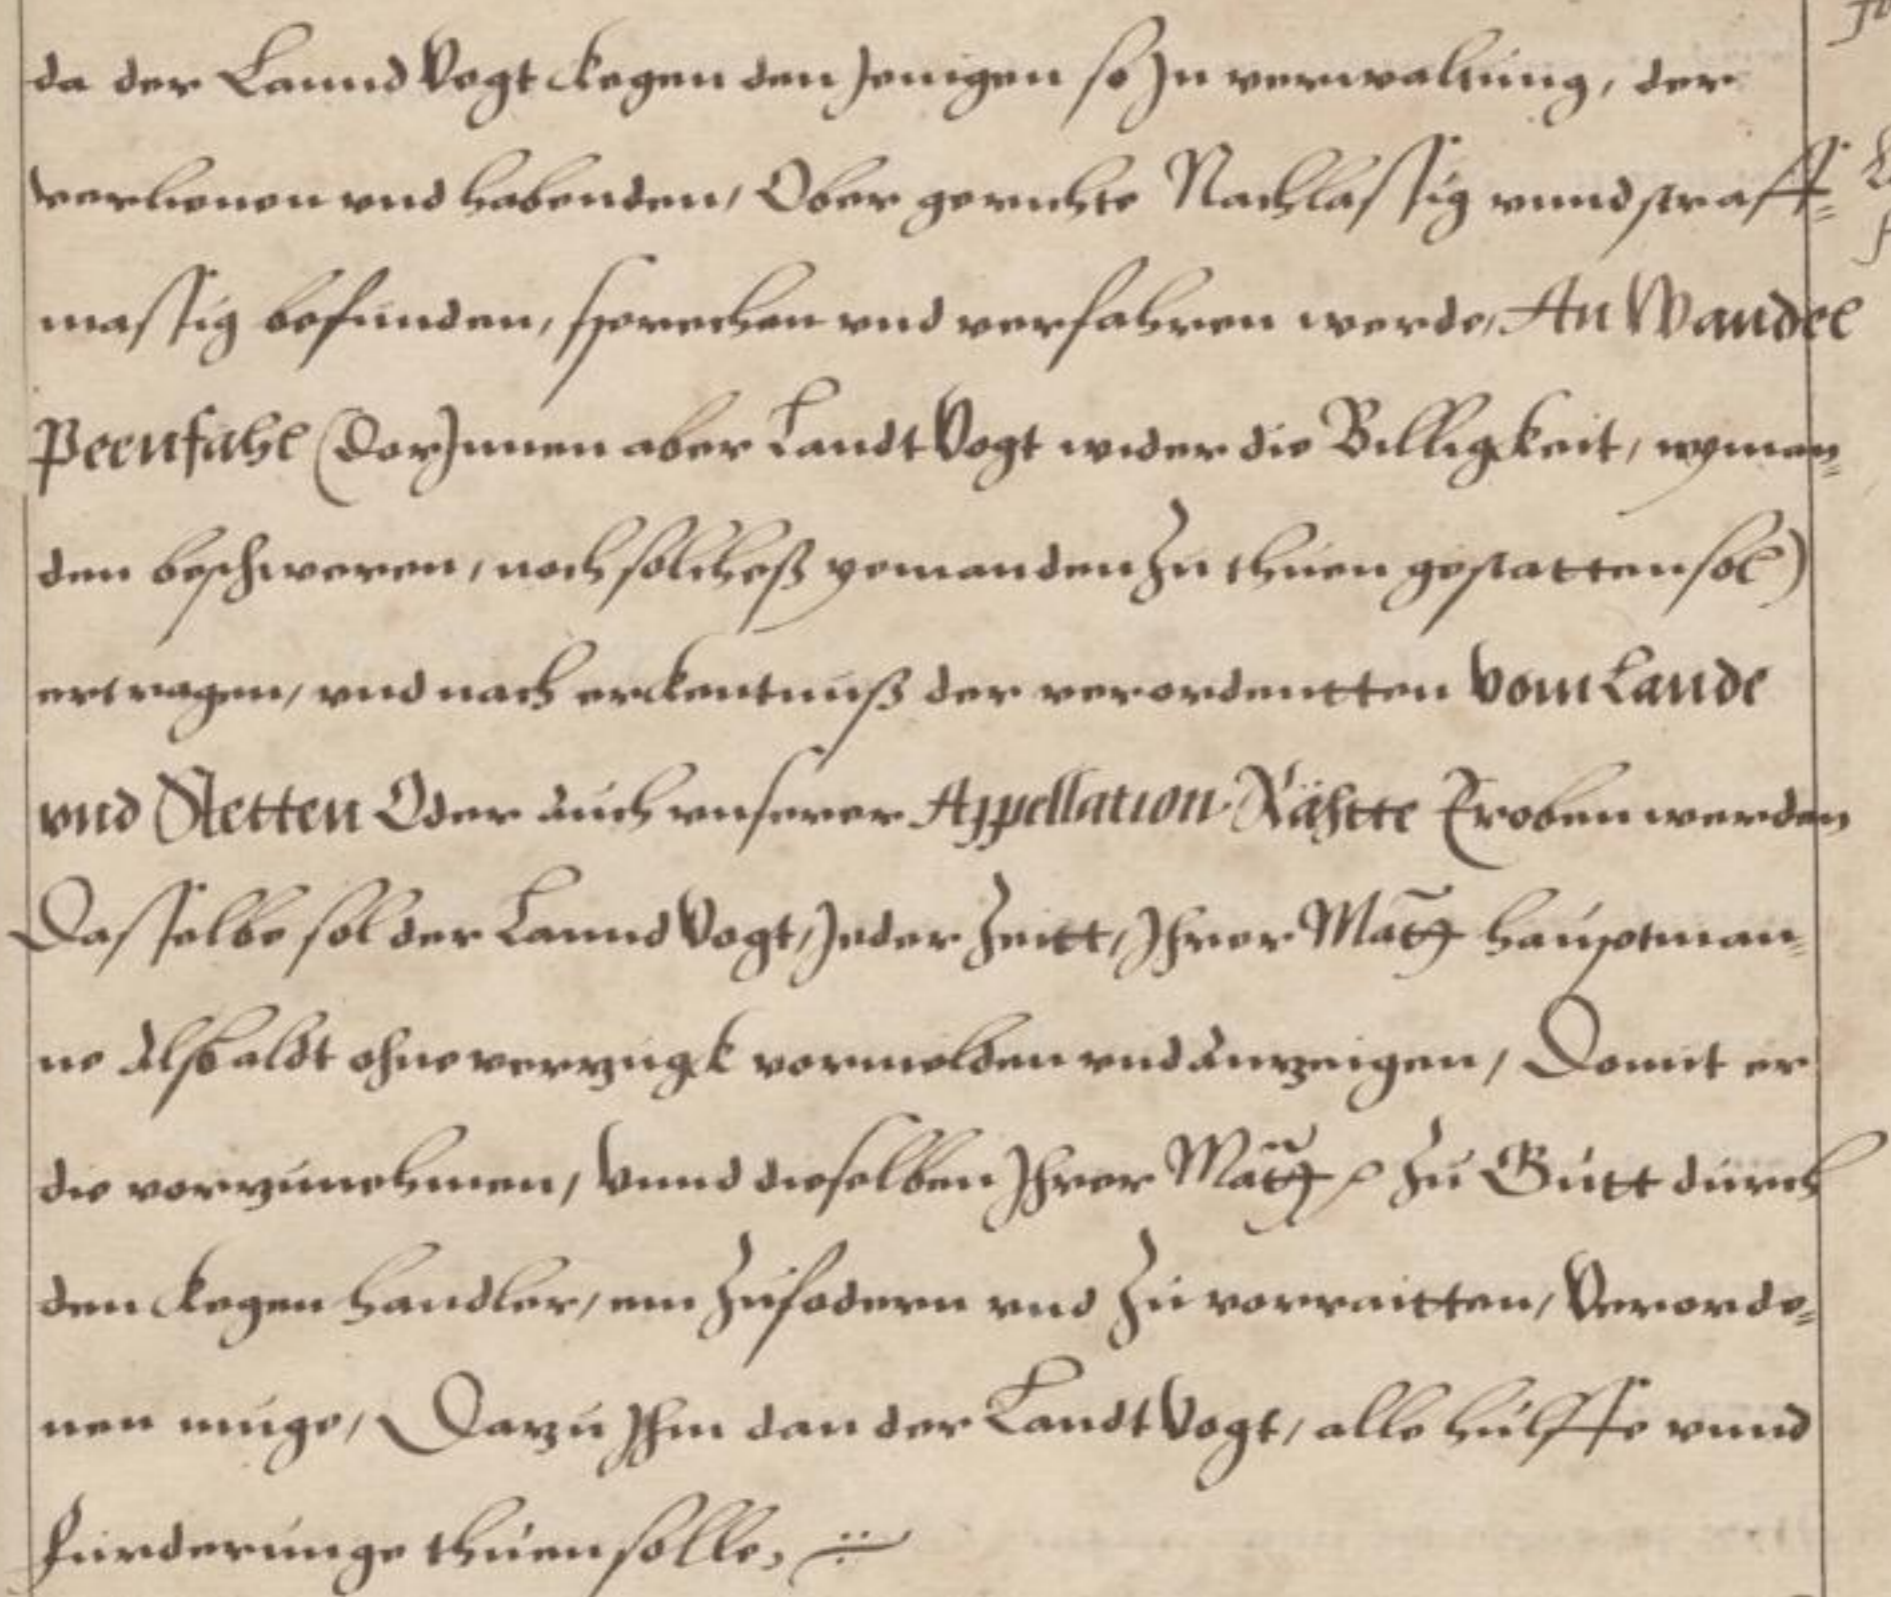 da der Lannd Vogt kegen den Jenigen so Jn verwaltung, der
verlienen vnd habenden, Ober gerichte Nachlassig vnnd straff=
massig befunden, sprechen vnd verfahren werde, An Wandel
Peenfahl (Dor Jnnen aber Landt Vogt wider die Billigkeit, nyman=
den beschweren, noch solcheß yemanden Zu thuen gestatten sol)
ertragen, vnd nach erkentnuß der verordentten Vom Lande
vnd Stetten Oder auch vnserer Appellation Rähtte Eroben werden
Dasselbe sol der Lannd Vogt, Jeder Zeitt, Jhrer Matt hauptman=
ne Alßbaldt ohne verzugk vormelden vnd Anzeigen, Domit er
die vorzunehmen, Vnnd dieselben Jhrer Matt Zu Gutt durch
den kegen handler, ein Zufodern vnd Zu vorraitten, Verorde=
nen muge, Darzu Jhm dan der Landt Vogt, alle hulffe vnnd
furderunge thuen solle,